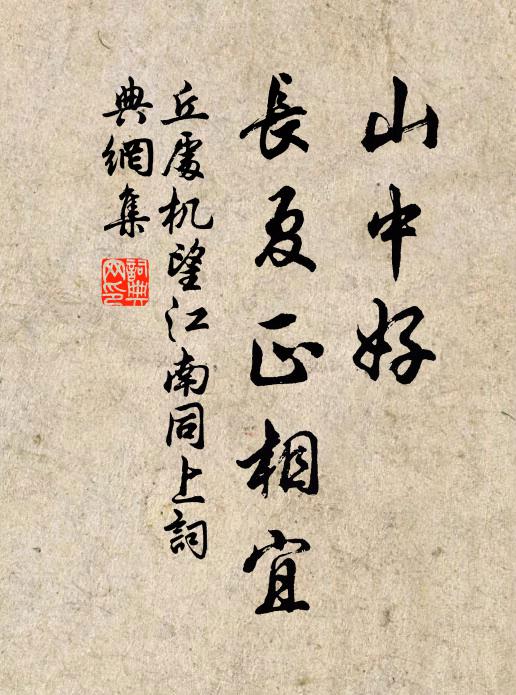 山中好
長夏正相宜
丘處机望江南同上詞
典網集
詞典網印